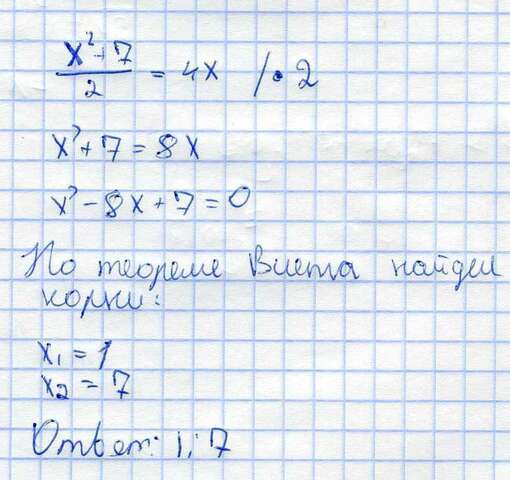 x²+7/2 = 4x /·2
x²+7=8x
x²-8x+7=0
По теореме Виета найдем
корни:
x₁=1
x₂=7
Ответ: 1; 7